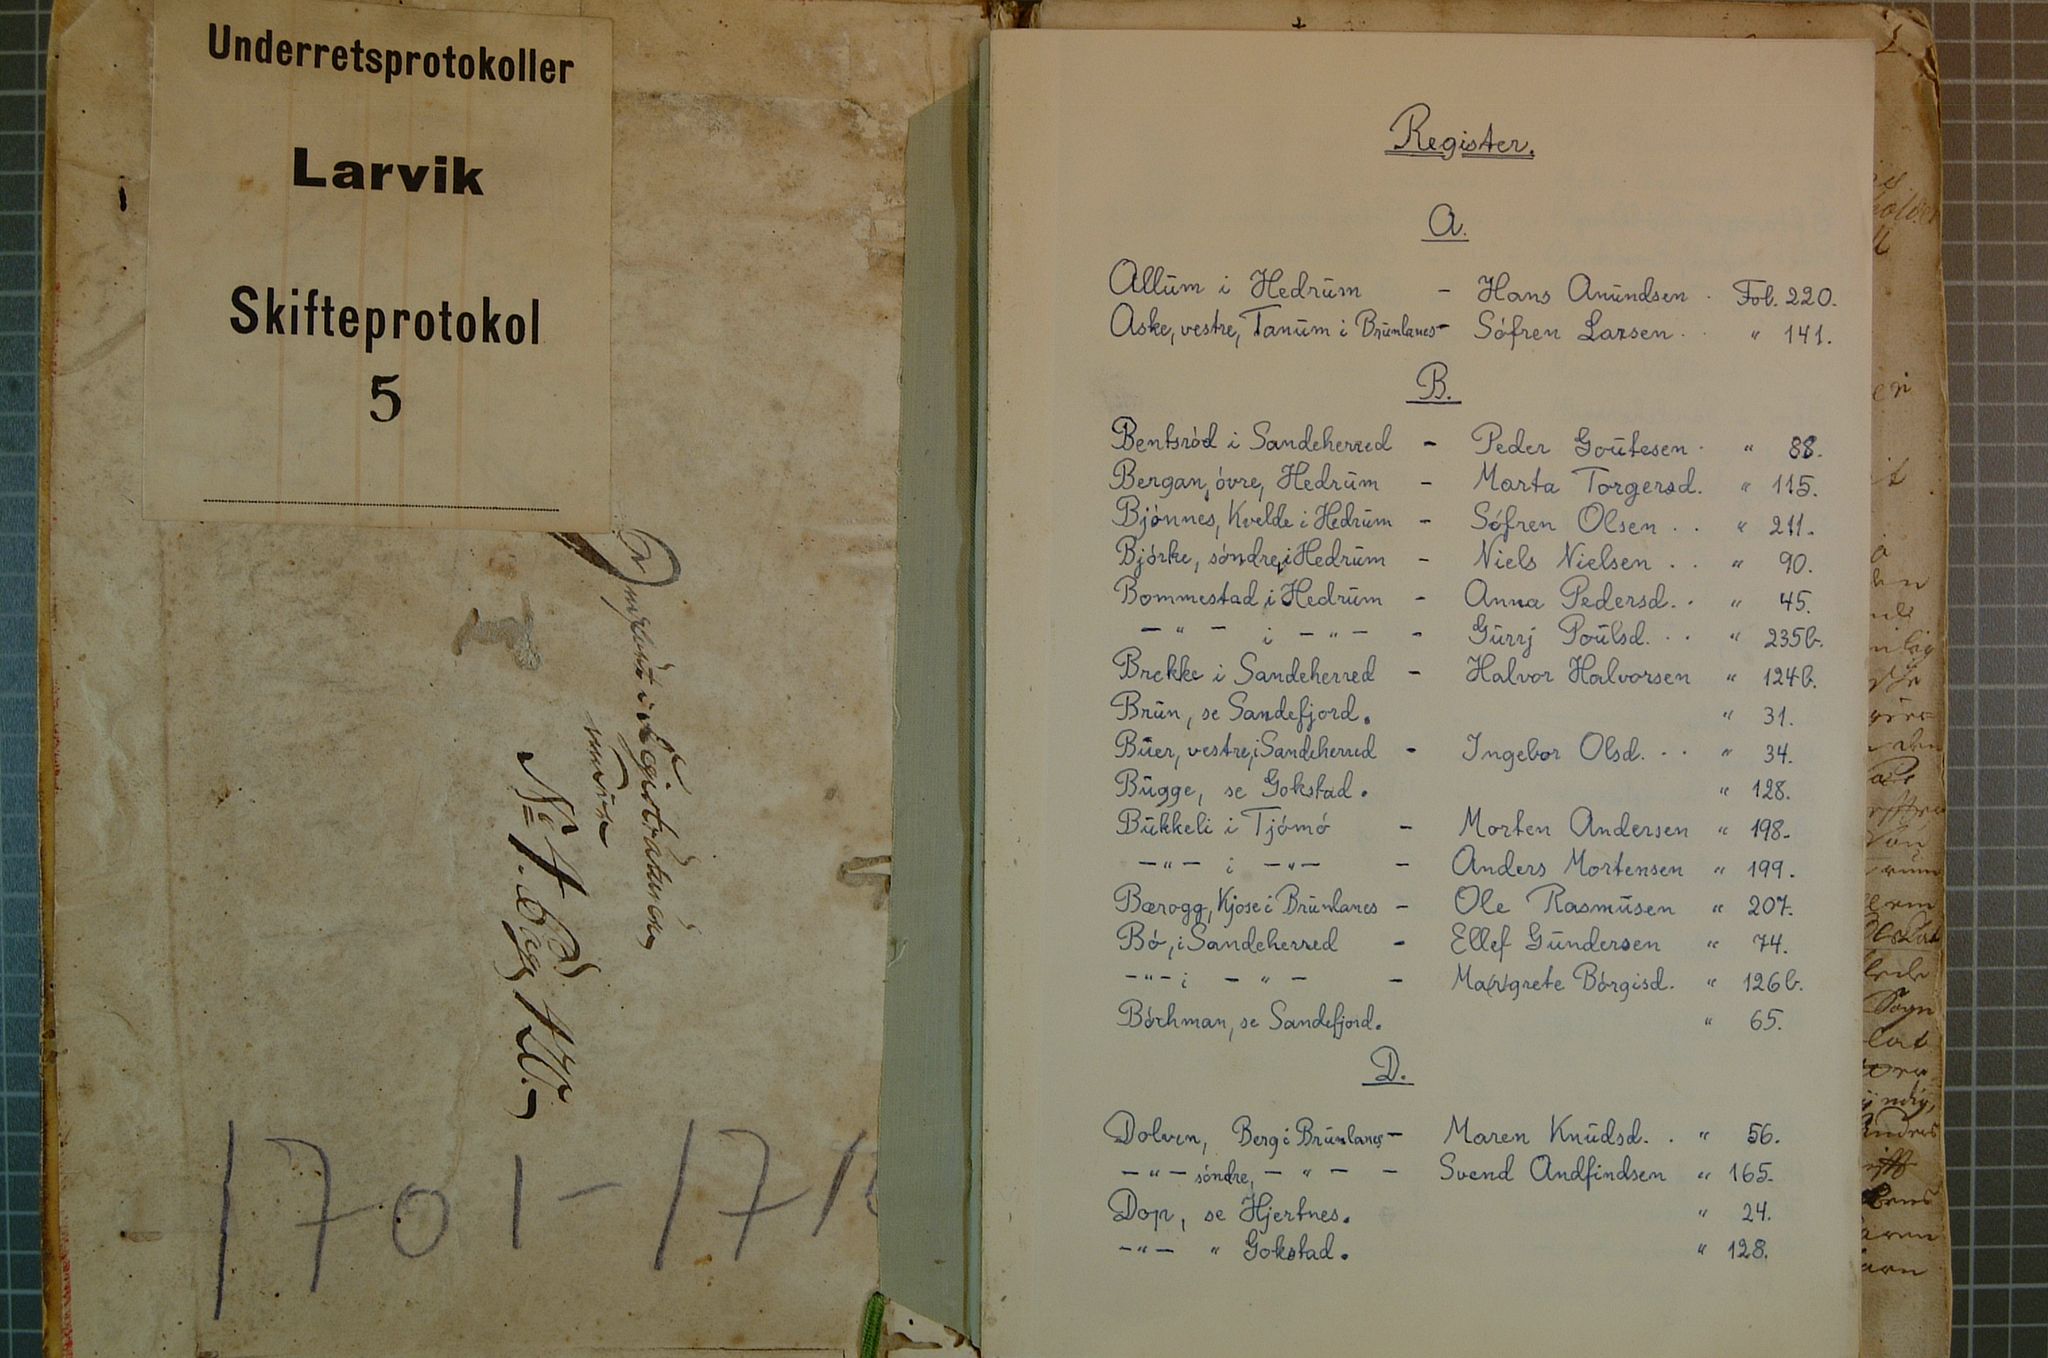 Underretsprotokoller
Larvik
Skifteprotokol
5
1701-171
Register.
A.
Allum i Hedrum - Hans Anundsen . Fol. 220.
Aske, vestre, Tanum i Brunlanes - Sófren Larsen . " 141.
B.
Bentsród i Sandeherred - Peder Goutesen . " 88.
Bergan, óvre, Hedrum - Marta Torgersd. " 115.
Bjónnes, Kvelde i Hedrum - Sófren Olsen . . " 211.
Bjórke, sóndre, i Hedrum - Niels Nielsen . . " 90.
Bommestad i Hedrum - Anna Pedersd. . " 45.
- " - i - " - - Gurrj Poulsd. . . " 235b.
Brekke i Sandeherred - Halvor Halvorsen " 124b.
Brun, se Sandefjord. " 31.
Buer, vestre, i Sandeherred - Ingebor Olsd. . . " 34.
Bugge, se Gokstad. " 128.
Bukkeli i Tjómó - Morten Andersen " 198.
- " - i - " - - Anders Mortensen " 199.
Bærogg, Kjose i Brunlanes - Ole Rasmusen " 207.
Bó, i Sandeherred - Ellef Gundersen " 74.
- " - i - " - - Ma(r)grete Bórgisd. " 126b.
Bórhman, se Sandefjord. " 65.
D.
Dolven, Berg i Brunlanes - Maren Knudsd. . " 56.
- " - sóndre, - " - - Svend Andfindsen " 165.
Dop, se Hjertnes. " 24.
- " - " Gokstad. " 128.